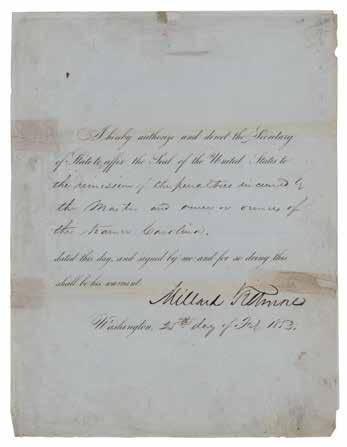 I hereby authorize and direct the Secretary
of State to affix the Seal of the United States to
the remission of the penalties incurred by
the Master and owner or owners of
the steamer Carolina,
dated this day, and signed by me and for so doing this
shall be his warrant.
Millard Fillmore
Washington, 25th day of Feb 1853.